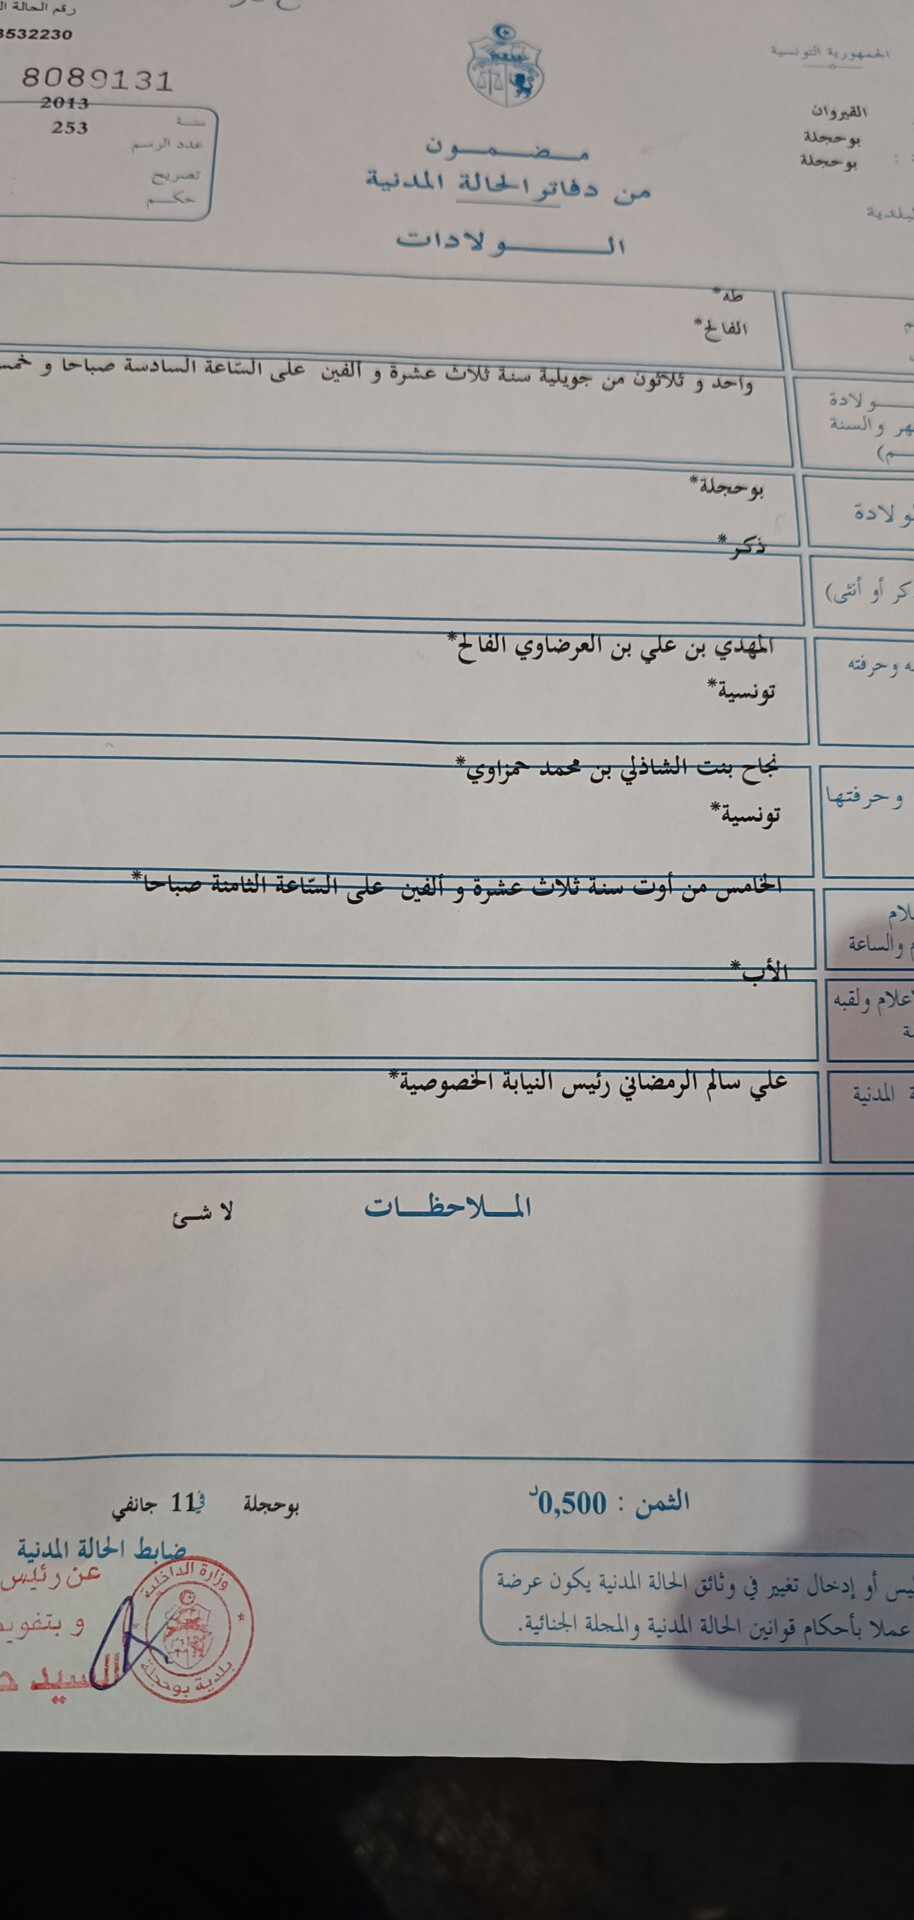 رقم الحالة
3532230
8089131
الجمهورية التونسية
القيروان
بوحجلة
بوحجلة
2013
سنة
253
عدد الرسم
تصريح
حكم
مضمون
من دفاتر الحالة المدنية
الولادات
طه*
الفالح*
واحد و ثلاثون من جويلية سنة ثلاث عشرة و ألفين على السّاعة السادسة صباحا و
ولادة
والسنة
بوحجلة*
ولادة
ذكر*
أو أنثى)
المهدي بن علي بن العرضاوي الفالح*
وحرفته
تونسية*
نجاح بنت الشاذلي بن محمد حمزاوي*
وحرفتها
تونسية*
الخامس من أوت سنة ثلاث عشرة و ألفين على السّاعة الثامنة صباحا*
والساعة
الأب*
ولقبه
علي سالم الرمضاني رئيس النيابة الخصوصية*
المدنية
الملاحظات
لا شئ
الثمن : 0,500د
بوحجلة في 11 جانفي
ضابط الحالة المدنية
عن رئيس
السيد
وزارة الداخلية
بلدية بوحجلة
أو إدخال تغيير في وثائق الحالة المدنية يكون عرضة
عملا بأحكام قوانين الحالة المدنية والمجلة الجنائية.